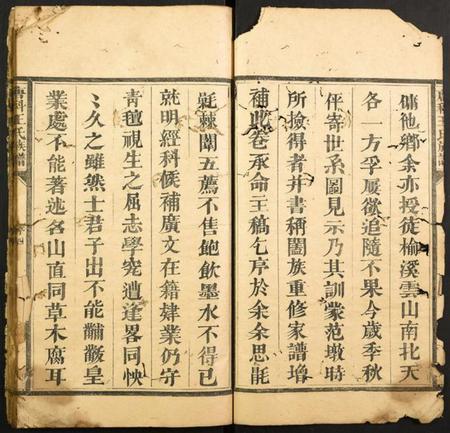 傭他鄉余亦授徒榆溪雲山南北天
各一方孚厦欲追隨不果今歲季秋
伻寄世系圖見示乃其訓蒙范墩時
所撿得者并書稱闔族重修家譜增
補此卷承命主稿乞序於余余思毷
毷棘闈五薦不售飽飲墨水不得已
就明經科候補廣文在籍肄業仍守
青氊視生之屈志學究遭逢畧同怏
〻久之雖然士君子出不能黼黻皇
業處不能著述名山直同草木腐耳
唐科王氏族譜